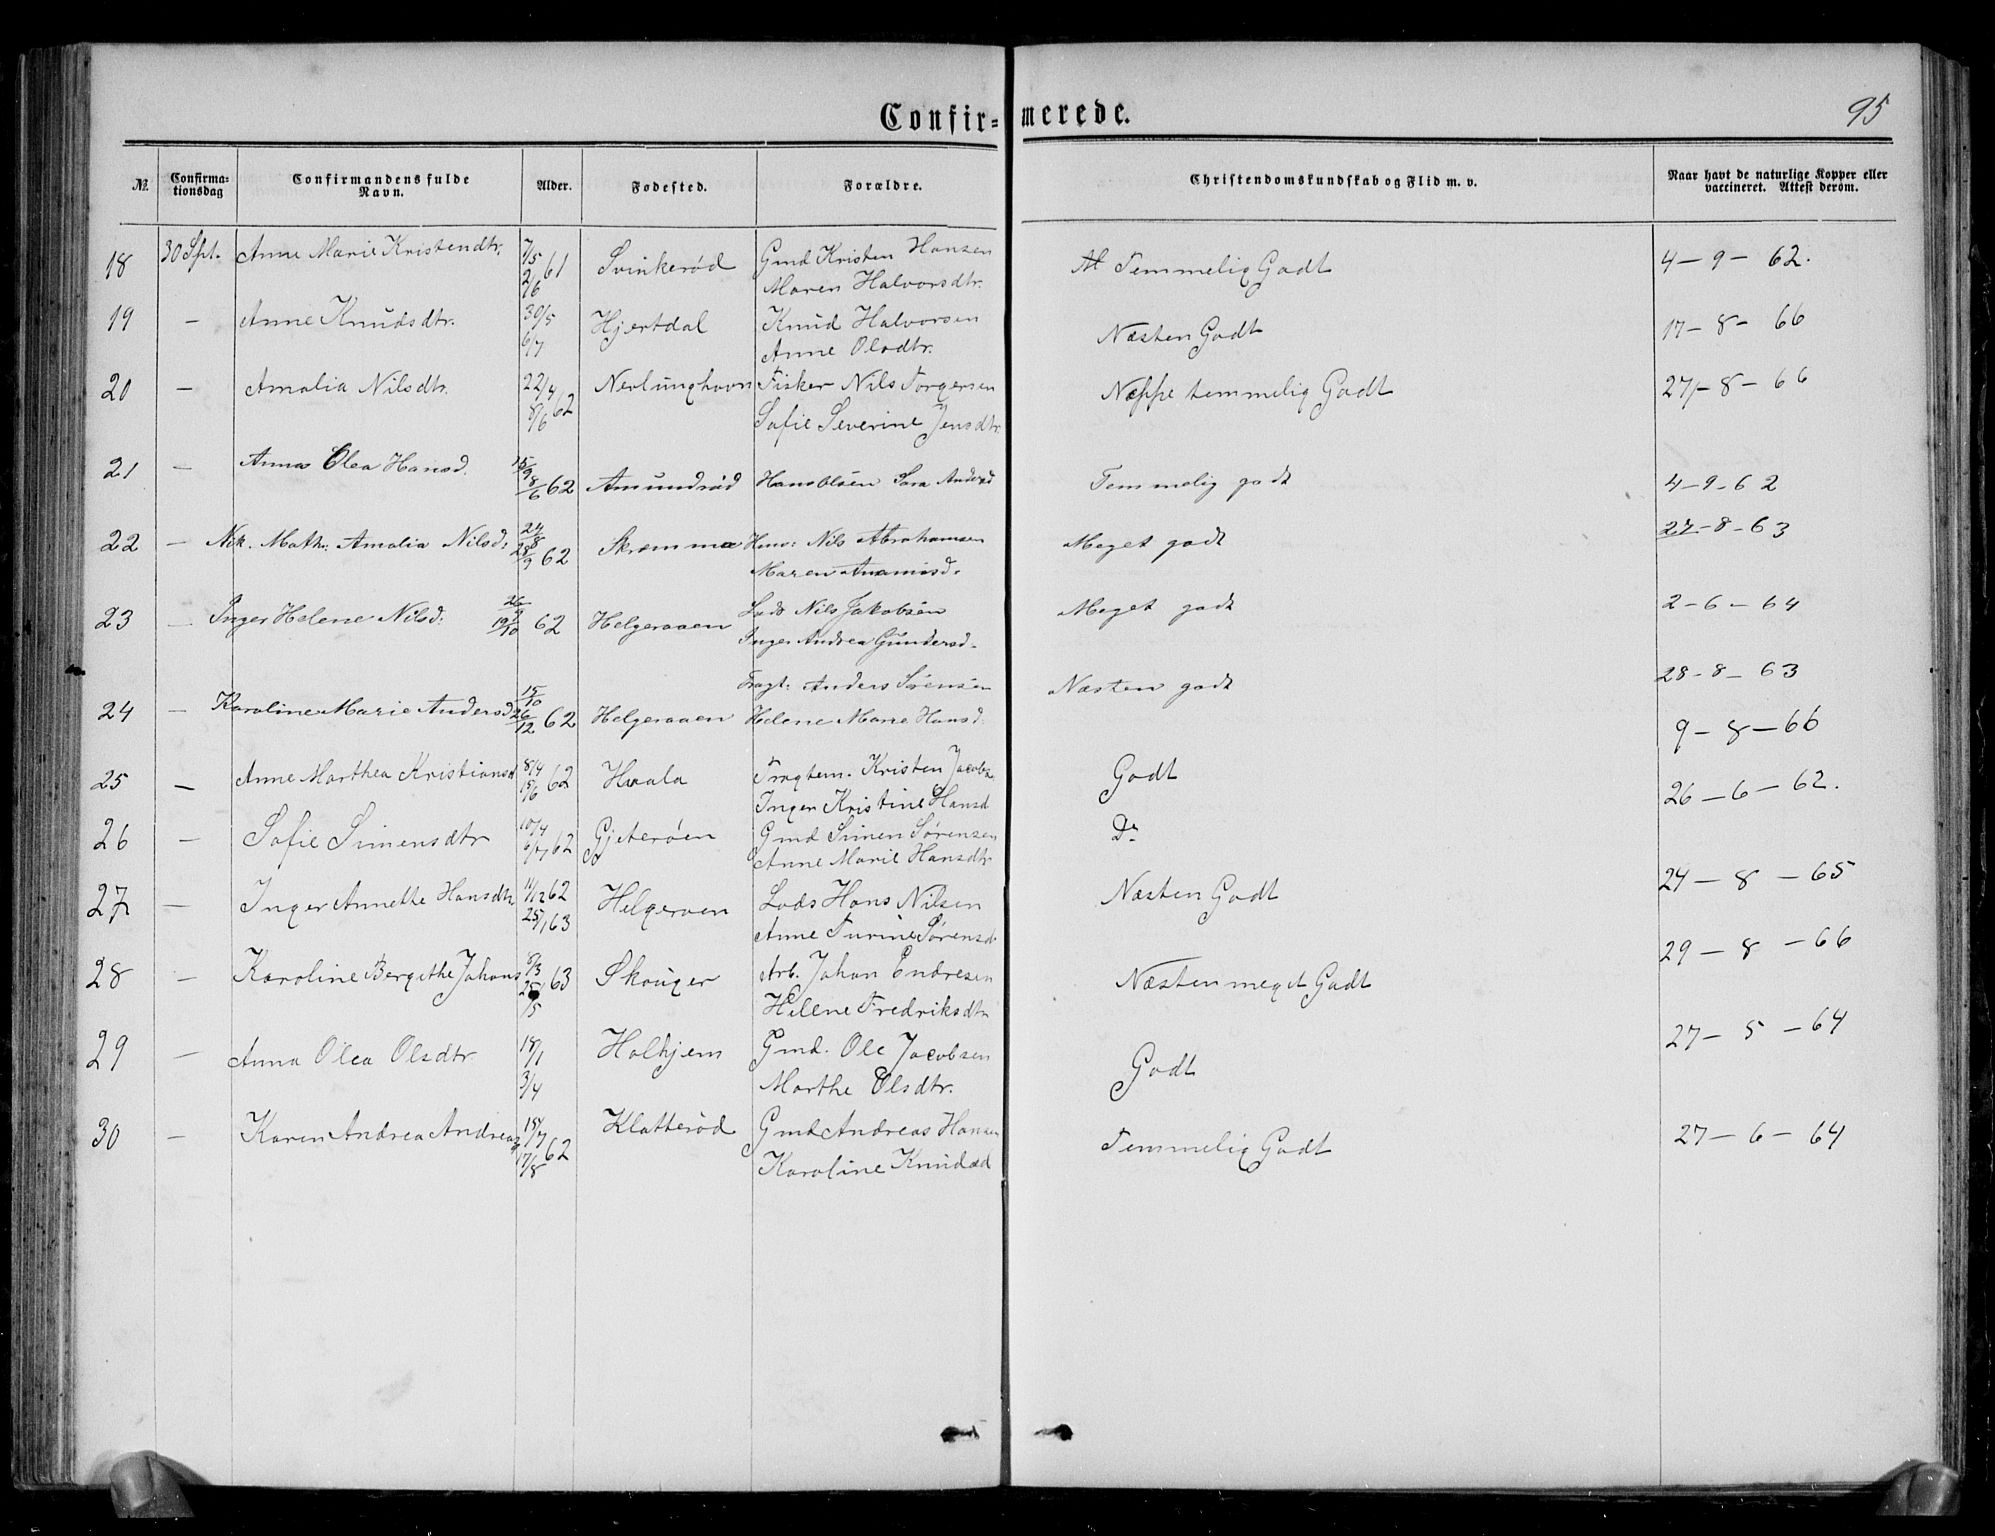 Confir= merede. 95
No. Confirma-tionsdag Confirmandens fulde Navn. Alder. Fødested. Forældre. Christendomskundskab og Flid m. v. Naar havt de naturlige Kopper eller vaccineret. Attest derom.
18 30 Spt. Anne Marie Kristendtr. 7/5 61 Svinkerød Gmd Kristen Hansen Temmelig Godt 4-9-62.
2/6 Maren Halvorsdtr.
19 — Anne Knudsdtr. 30/5 Hjertdal Knud Halvorsen Næsten Godt 17-8-66
6/7 Anne Olsdtr.
20 — Amalia Nilsdtr. 22/4 62 Nevlunghavn Fisker Nils Torgersen Neppe temmelig Godt 27-8-66
8/6 Sofie Severine Jensdtr.
21 — Anna Olea Hansd. 15/9 8/6 62 Amundrød Hans Olsen Sara Andersd Temmelig godt 4-9-62
22 — Nik. Math: Amalia Nilsd: 24/8 28/9 62 Skremma Nils Abrahamsen Meget godt 27-8-63
Maren
23 — Inger Helene Nilsd: 26/9 19/10 62 Helgeraaen Lods Nils Jakobsen Meget godt 2-6-64
Inger Andrea Gundersd.
Fragt: Anders Sørensen Næsten godt 28-8-63
24 — Karoline Marie Andersd 15/10 26/12 62 Helgeraaen Helene Marie Hansd.
9-8-66
25 — Anne Marthea Kristiansd 8/4 62 Haala Fragtem. Kristen Jacobs. Godt
15/6 Inger Kristine Hansd 26-6-62.
26 — Sofie Simensdtr 10/4 62 Gjeterøen Gmd Simen Sørensen Do
6/7 Anne Marie Hansdtr
27 — Inger Annette Hansdtr 11/12 62 Helgeroen Lods Hans Nilsen Næsten Godt 24-8-65
25/1 63 Anne Turine Sørensd.
28 — Karoline Bergithe Johans 8/3 63 Skouger Arb. Johan Endresen Næsten meget Godt 29-8-66
25/5 Helene Fredriksdtr
29 — Anna Olea Olsdtr 18/1 Holhjem Gmd. Ole Jacobsen Godt 27-5-64
3/4 Marthe Olsdtr.
30 — Karen Andrea Andreas 15/7 62 Klatterød Gmd Andreas Hansen Temmelig Godt 27-6-64
17/8 Karoline Knudsd